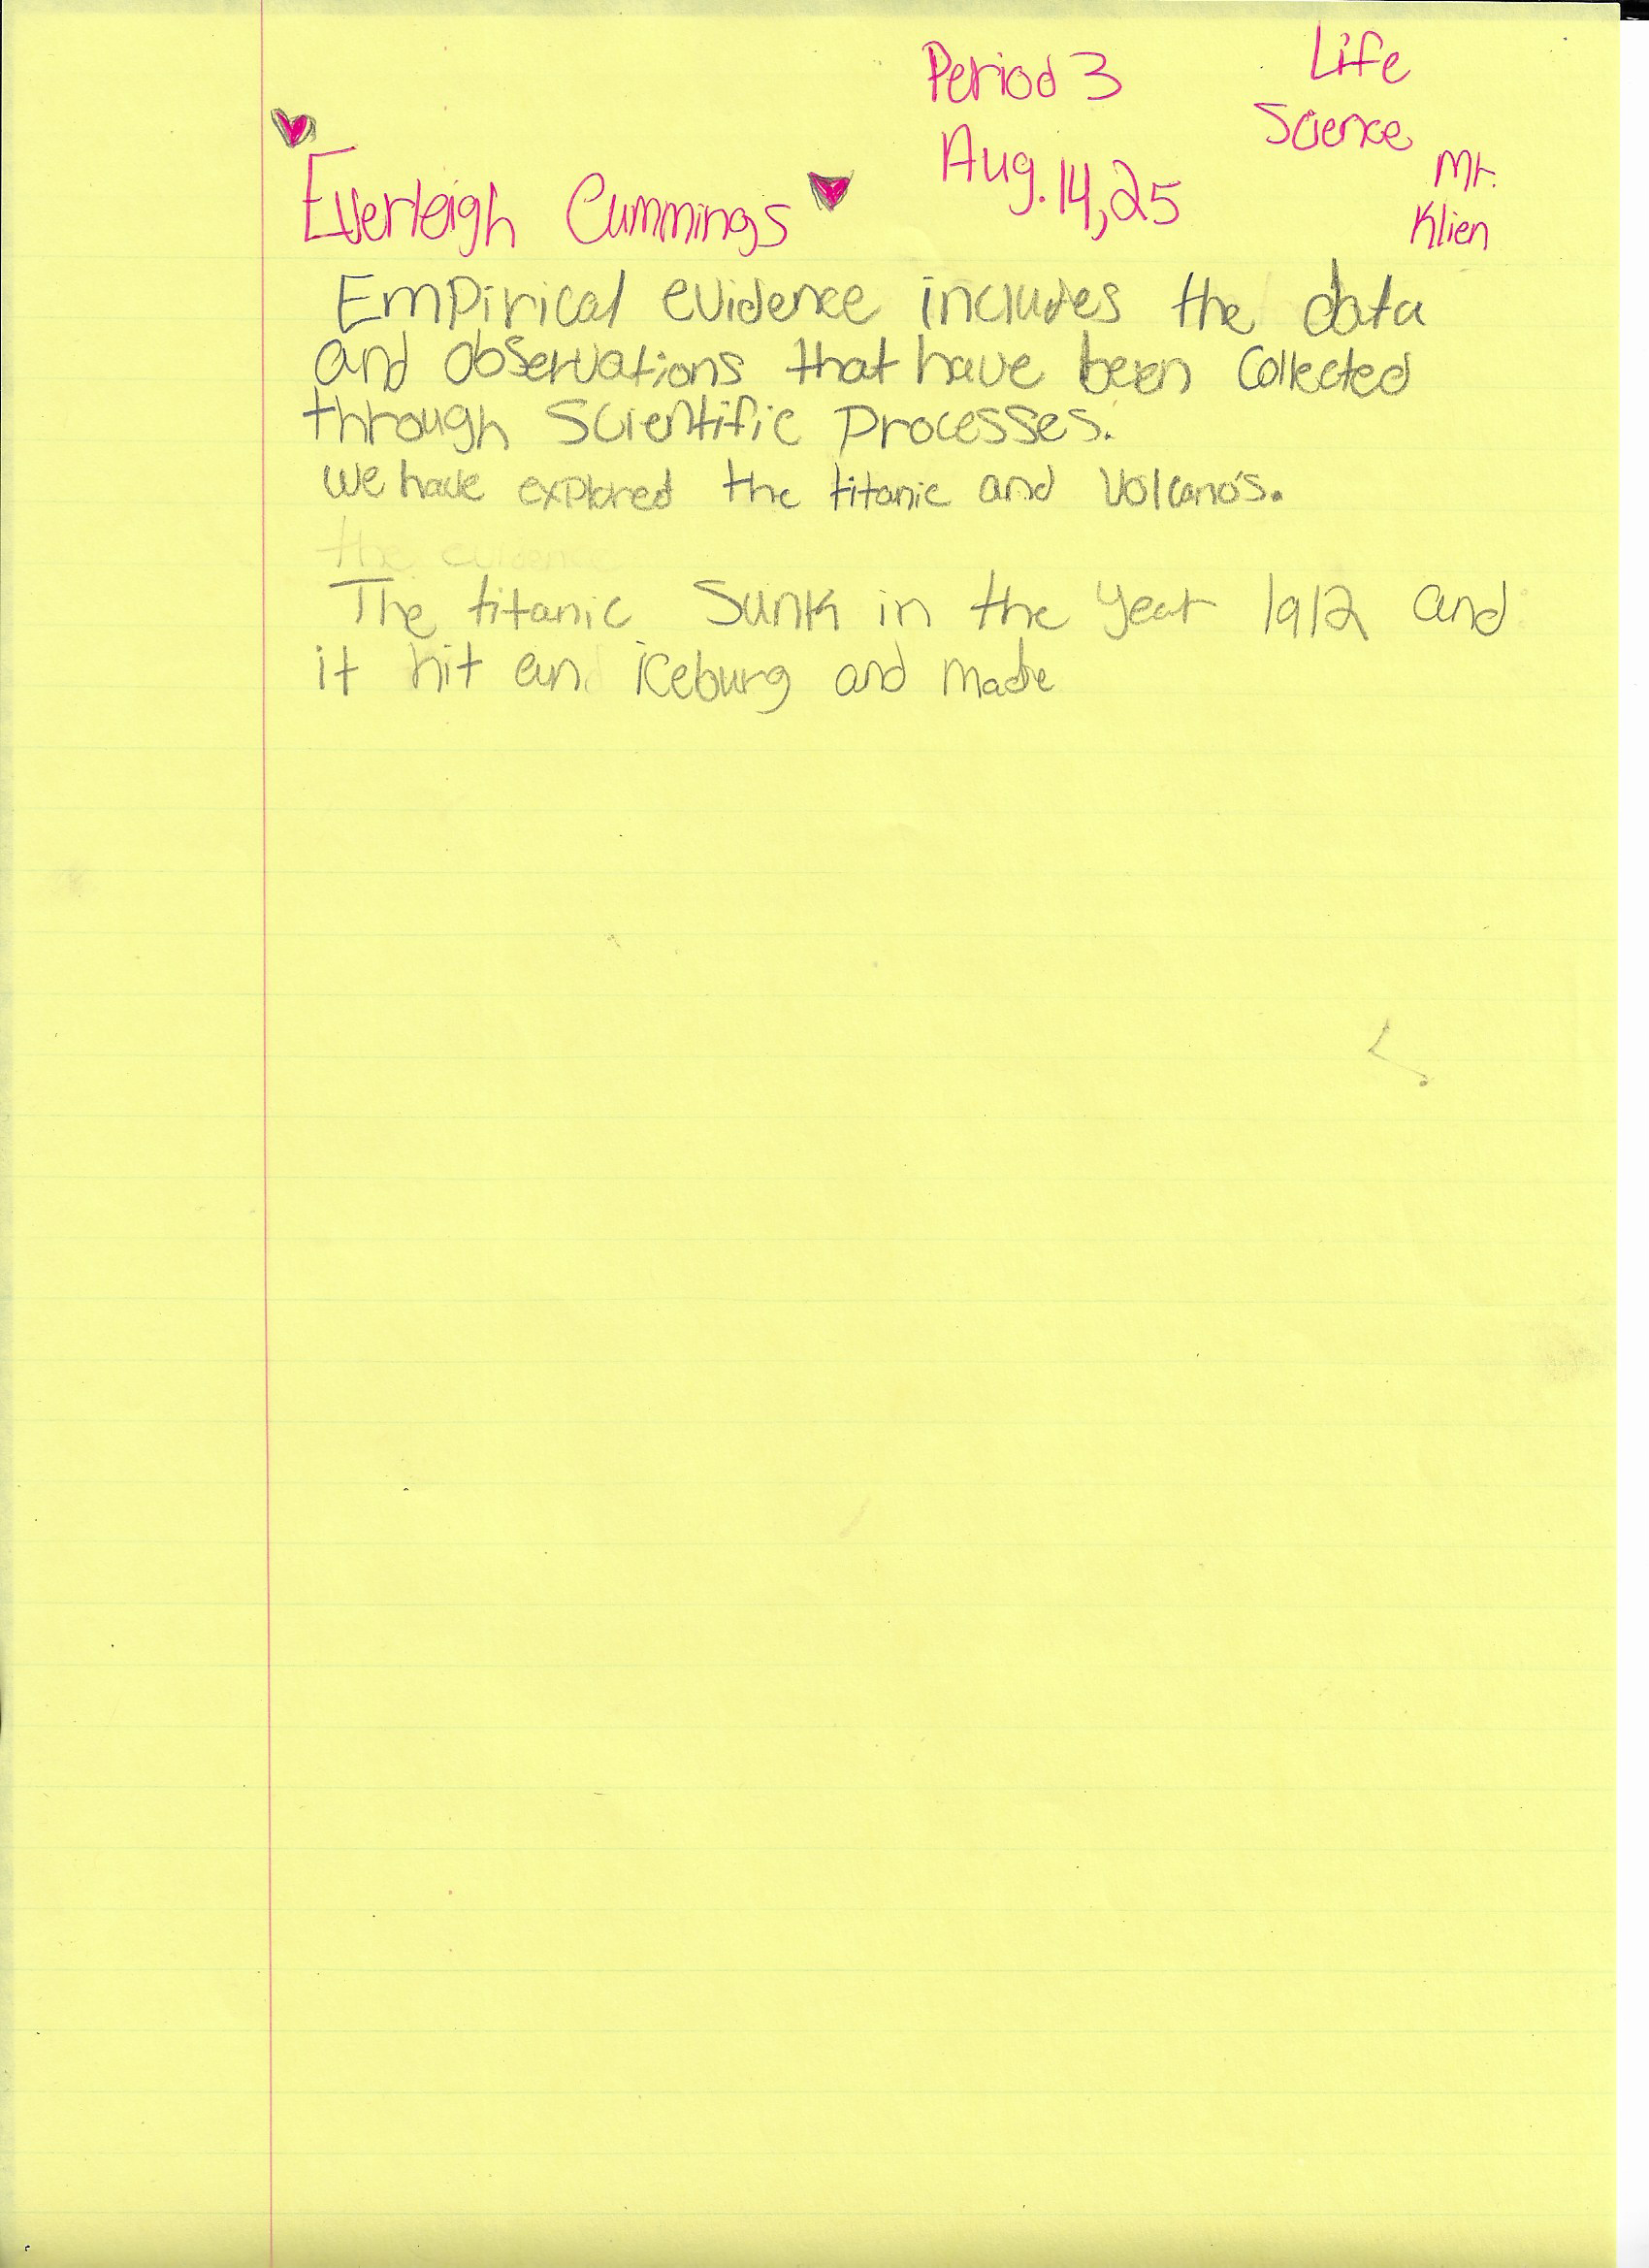 Period 3
Life
Science
Mr.
Klien
Aug. 14, 25
Everleigh Cummings
Empirical evidence includes the data
and observations that have been Collected
through Scientific Processes.
we have explored the titanic and Volcano's.
the evidence
The titanic Sunk in the year 1912 and
it hit an iceburg and made